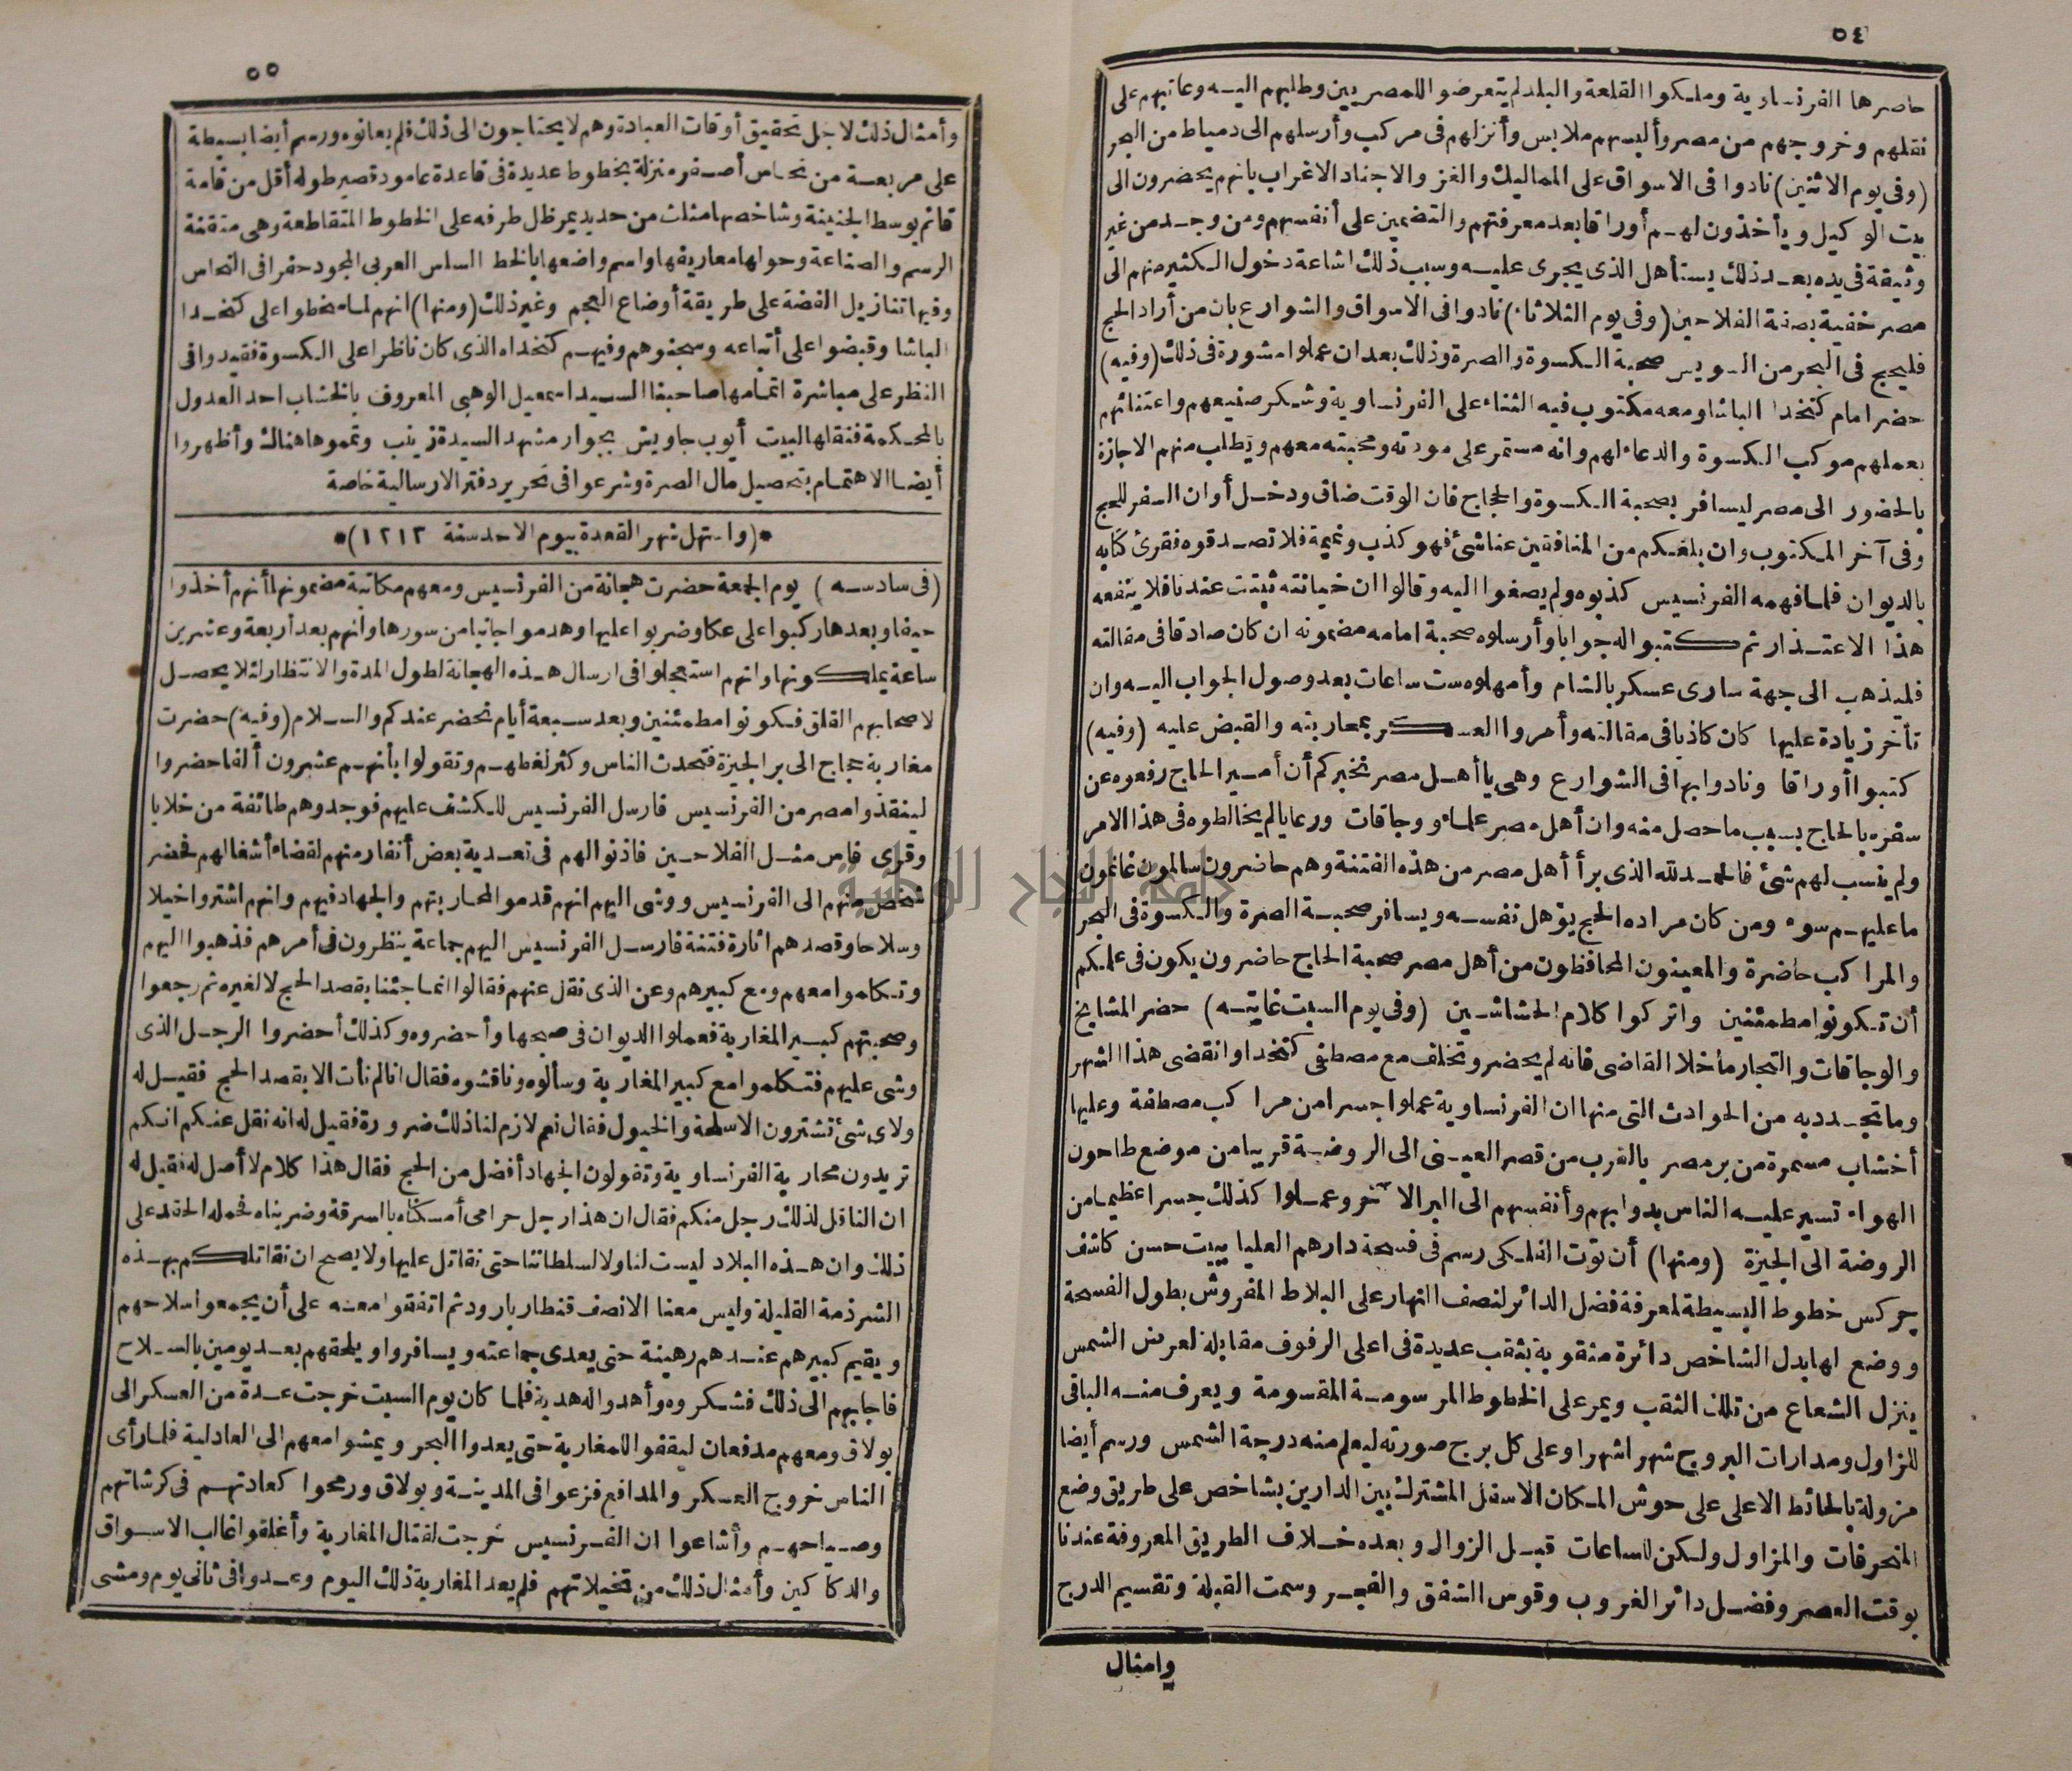 ٥٤
حاصرها الفرنساوية وملكوا القلعة والبلد لم يتعرضوا للمصريين وطلبهم اليه وعاتبهم على
نقلهم وخروجهم من مصر وألبسهم ملابس وأنزلهم فى مركب وأرسلهم الى دمياط من البحر
(وفى يوم الاثنين) نادوا فى الاسواق على المماليك والغز والاجناد الاغراب بانهم يحضرون الى
بيت الوكيل ويأخذون لهم أوراقا بعد معرفتهم والتضمين على أنفسهم ومن وجد من غير
وثيقة فى يده بعد ذلك يستأهل الذى يجرى عليه وسبب ذلك اشاعة دخول الكثير منهم الى
مصر خفية بصفة الفلاحين (وفى يوم الثلاثاء) نادوا فى الاسواق والشوارع بان من أراد الحج
فليحج فى البحر من السويس صحبة الكسوة والصرة وذلك بعد ان عملوا مشورة فى ذلك (وفيه)
حضر امام كتخدا الباشا ومعه مكتوب فيه الثناء على الفرنساوية وشكر صنيعهم واعتنائهم
بعملهم موكب الكسوة والدعاء لهم وانه مستمر على مودته ومحبته معهم ويطلب منهم الاجازة
بالحضور الى مصر ليسافر بصحبة الكسوة والحجاج فان الوقت ضاق ودخل أوان السفر للحج
وفى آخر المكتوب وان بلغكم من المنافقين عنا شئ فهو كذب ونميمة فلا تصدقوه فقرئ كتابه
بالديوان فلما فهمه الفرنسيس كذبوه ولم يصغوا اليه وقالوا ان خيانته ثبتت عندنا فلا ينفعه
هذا الاعتذار ثم كتبوا له جوابا وأرسلوه صحبة امامه مضمونه ان كان صادقا فى مقالته
فليذهب الى جهة سارى عسكر بالشام وأمهلوه ست ساعات بعد وصول الجواب اليه وان
تأخر زيادة عليها كان كاذبا فى مقالته وأمروا العسكر بمحاربته والقبض عليه (وفيه)
كتبوا أوراقا ونادوا بها فى الشوارع وهى يا أهل مصر نخبركم أن أمير الحاج رفعوه عن
سفره بالحاج بسبب ما حصل منه وان أهل مصر علماء ووجاقات ورعايا لم يخالطوه فى هذا الامر
ولم ينسب لهم شئ فالحمد لله الذى برأ أهل مصر من هذه الفتنة وهم حاضرون سالمون غانمون
ما عليهم سوء ومن كان مراده الحج يؤهل نفسه ويسافر صحبة الصرة والكسوة فى البحر
والمراكب حاضرة والمعينون المحافظون من أهل مصر صحبة الحاج حاضرون يكون فى علمكم
أن تكونوا مطمئنين واتركوا كلام الحشاشين (وفى يوم السبت غايته) حضر المشايخ
والوجاقات والتجار ما خلا القاضى فانه لم يحضر وتخلف مع مصطفى كتخدا وانقضى هذا الشهر
وما تجدد به من الحوادث التى منها ان الفرنساوية عملوا جسرا من مراكب مصطفة وعليها
أخشاب مسمرة من بر مصر بالقرب من قصر العينى الى الروضة قريبا من موضع طاحون
الهواء تسير عليه الناس بدوابهم وأنفسهم الى البر الآخر وعملوا كذلك جسرا عظيما من
الروضة الى الجيزة (ومنها) أن توت الفلكى رسم فى فسحة دارهم العليا ببيت حسن كاشف
جركس خطوط البسيطة لمعرفة فضل الدائر لنصف النهار على البلاط المفروش بطول الفسحة
ووضع لها بدل الشاخص دائرة مثقوبة بثقب عديدة فى اعلى الرفوف مقابلة لعرض الشمس
ينزل الشعاع من تلك الثقب ويمر على الخطوط المرسومة المقسومة ويعرف منه الباقى
للزاول ومدارات البروج شهرا شهرا وعلى كل برج صورته ليعلم منه درجة الشمس ورسم أيضا
مزولة بالحائط الاعلى على حوش المكان الاسفل المشترك بين الدارين بشاخص على طريق وضع
المنحرفات والمزاول ولكن لساعات قبل الزوال وبعده خلاف الطريق المعروفة عندنا
بوقت العصر وفضل دائر الغروب وقوس الشفق والفجر وسمت القبلة وتقسيم الدرج
وامثال
٥٥
وأمثال ذلك لاجل تحقيق أوقات العبادة وهم لا يحتاجون الى ذلك فلم يعانوه ورسم أيضا بسيطة
على مربعة من نحاس أصفر منزلة بخطوط عديدة فى قاعدة عامود قصير طوله أقل من قامة
قائم بوسط الجنينة وشاخصها مثلث من حديد يمر ظل طرفه على الخطوط المتقاطعة وهى متقنة
الرسم والصناعة وحولها معاريفها واسم واضعها بالخط السلس العربى المجود حفرا فى النحاس
وفيها تنازيل الفضة على طريقة أوضاع العجم وغير ذلك (ومنها) انهم لما سخطوا على كتخدا
الباشا وقبضوا على أتباعه وسجنوهم وفيهم كتخداه الذى كان ناظرا على الكسوة فقيدوا فى
النظر على مباشرة اتمامها صاحبنا السيد اسمعيل الوهبى المعروف بالخشاب احد العدول
بالمحكمة فنقلها لبيت أيوب جاويش بجوار مشهد السيدة زينب وتمموها هناك وأظهروا
أيضا الاهتمام بتحصيل مال الصرة وشرعوا فى تحرير دفتر الارسالية خاصة
*(واستهل شهر القعدة بيوم الاحد سنة ١٢١٣)*
(فى سادسه) يوم الجمعة حضرت هجانة من الفرنسيس ومعهم مكاتبة مضمونها أنهم أخذوا
حيفا وبعدها ركبوا على عكا وضربوا عليها وهدموا جانبا من سورها وانهم بعد أربعة وعشرين
ساعة يملكونها وانهم استعجلوا فى ارسال هذه الهجانة لطول المدة والانتظار لئلا يحصل
لاصحابهم القلق فكونوا مطمئنين وبعد سبعة أيام نحضر عندكم والسلام (وفيه) حضرت
مغاربة حجاج الى بر الجيزة فتحدث الناس وكثر لغطهم وتقولوا بأنهم عشرون ألفا حضروا
لينقذوا مصر من الفرنسيس فارسل الفرنسيس للكشف عليهم فوجدوهم طائفة من خلايا
وقرى فاس مثل الفلاحين فاذنوا لهم فى تعدية بعض أنفار منهم لقضاء أشغالهم فحضر
شخص منهم الى الفرنسيس ووشى اليهم انهم قدموا لمحاربتهم والجهاد فيهم وانهم اشتروا خيلا
وسلاحا وقصدهم اثارة فتنة فارسل الفرنسيس اليهم جماعة ينظرون فى أمرهم فذهبوا اليهم
وتكلموا معهم ومع كبيرهم وعن الذى نقل عنهم فقالوا انما جئنا بقصد الحج لا لغيره ثم رجعوا
وصحبتهم كبير المغاربة فعملوا الديوان فى صبحها وأحضروه وكذلك أحضروا الرجل الذى
وشى عليهم فتكلموا مع كبير المغاربة وسألوه وناقشوه فقال انا لم نأت الا بقصد الحج فقيل له
ولاى شئ تشترون الاسلحة والخيول فقال نعم لازم لنا ذلك ضرورة فقيل له انه نقل عنكم انكم
تريدون محاربة الفرنساوية وتقولون الجهاد أفضل من الحج فقال هذا كلام لا أصل له فقيل له
ان الناقل لذلك رجل منكم فقال ان هذا رجل حرامى أمسكناه بالسرقة وضربناه فحمله الحقد على
ذلك وان هذه البلاد ليست لنا ولا لسلطاننا حتى نقاتل عليها ولا يصح ان نقاتلكم بهذه
الشرذمة القليلة وليس معنا الا نصف قنطار بارود ثم اتفقوا معه على أن يجمعوا سلاحهم
ويقيم كبيرهم عندهم رهينة حتى يعدى جماعته ويسافروا ويلحقهم بعد يومين بالسلاح
فاجابهم الى ذلك فشكروه وأهدوا له هدية فلما كان يوم السبت خرجت عدة من العسكر الى
بولاق ومعهم مدفعان ليقفوا للمغاربة حتى يعدوا البحر ويمشوا معهم الى العادلية فلما رأى
الناس خروج العسكر والمدافع فزعوا فى المدينة وبولاق ورمحوا كعادتهم فى كرشاتهم
وصياحهم وأشاعوا ان الفرنسيس خرجت لقتال المغاربة وأغلقوا غالب الاسواق
والدكاكين وأمثال ذلك من تخيلاتهم فلم يعد المغاربة ذلك اليوم وعدوا فى ثانى يوم ومشى
جامعة النجاح الوطنية